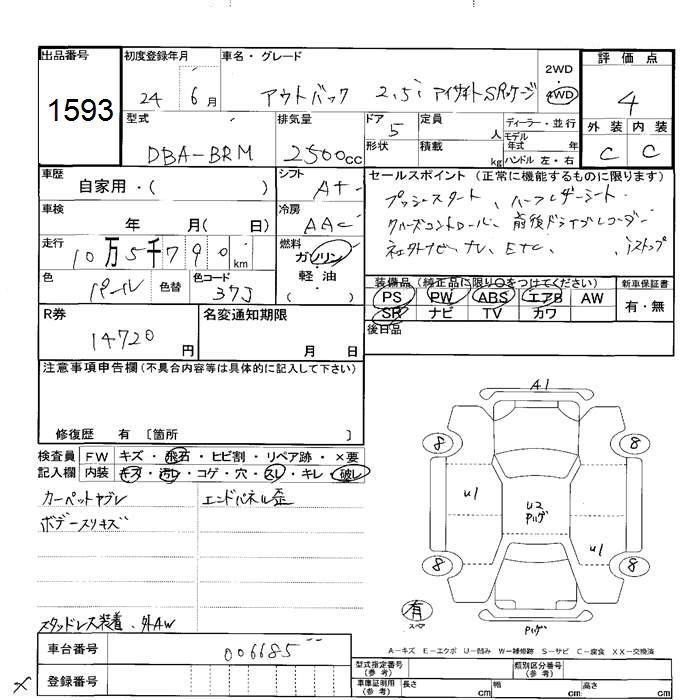 出品番号 初度登録年月 車名・グレード 2WD 評価点
1593 24 6月 アウトバック 2.5i アイサイトSパッケージ 4WD 4
型式 排気量 ドア 定員 ディーラー・並行 外装 内装
DBA-BRM 2500cc 5 人 モデル年式 年 C C
形状 積載 kg ハンドル 左・右
車歴 シフト セールスポイント (正常に機能するものに限ります)
自家用・( ) A+- プッシュスタート、ハーフレザーシート
車検 冷房 クルーズコントロール、前後ドライブレコーダー
年 月( 日) AAC 社外ナビ・TV、ETC、iストップ
走行 燃料
10万5千790km ガソリン・軽油・( )
色 色替 色コード 装備品 (純正品に限り○をつけてください) 新車保証書
パール 37J PS PW ABS エアB AW 有・無
R券 名変通知期限 SR ナビ TV カワ
14720円 月 日 後日品
注意事項申告欄(不具合内容等は具体的に記入して下さい)
修復歴 有 〔箇所 〕
検査員 FW キズ・飛石・ヒビ割・リペア跡・×要
記入欄 内装 キズ・汚レ・コゲ・穴・スレ・キレ・破レ
カーペットヤブレ エンドパネル歪
ボデースリキズ
スタッドレス装着、外AW
車台番号 006685
登録番号
A1
8 8
U1 U2
Pハゲ
U1
8 8
有
スペア
Pハゲ
A-キズ E-エクボ U-凹み W-補修跡 S-サビ C-腐食 XX-交換済
型式指定番号(参考) 類別区分番号(参考)
車庫証明用(参考) 長さ cm 幅 cm 高さ cm